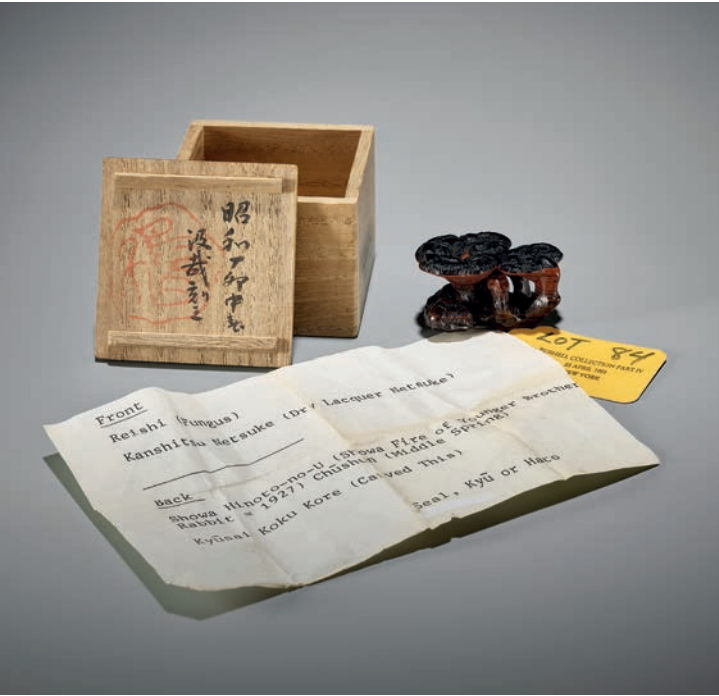 昭和丁卯中春
汲哉刻之
LOT 84
COLLECTION PART IV
APRIL
NEW YORK
Front
Reishi (Fungus)
Kanshitsu Netsuke (Dry Lacquer Netsuke)
Back
Showa Hinoto-no-U (Showa Fire of Younger Brother
Rabbit = 1927) Chūshun (Middle Spring"
Kyūsai Koku Kore (Carved This)
Seal, Kyū or Haco